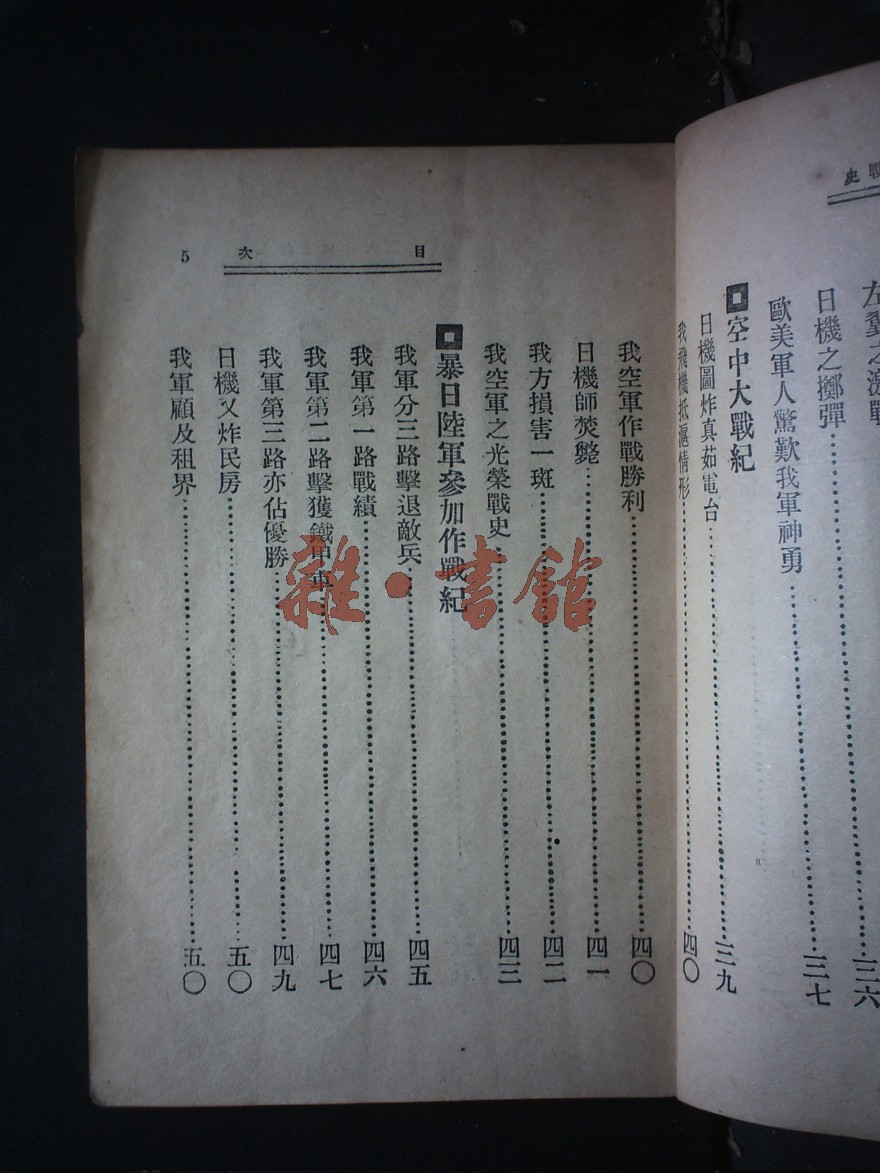 戰史
左翼之激戰
日機之擲彈……三六
歐美軍人驚歎我軍神勇……三七
空中大戰紀
日機圖炸真茹電台……三九
我飛機抵滬情形……四〇
目次 5
我空軍作戰勝利……四〇
日機師焚斃……四一
我方損害一斑……四二
我空軍之光榮戰史……四三
暴日陸軍參加作戰紀
我軍分三路擊退敵兵……四五
我軍第一路戰績……四六
我軍第二路擊獲鐵甲車……四七
我軍第三路亦佔優勝……四九
日機又炸民房……五〇
我軍顧及租界……五〇
雜·書館